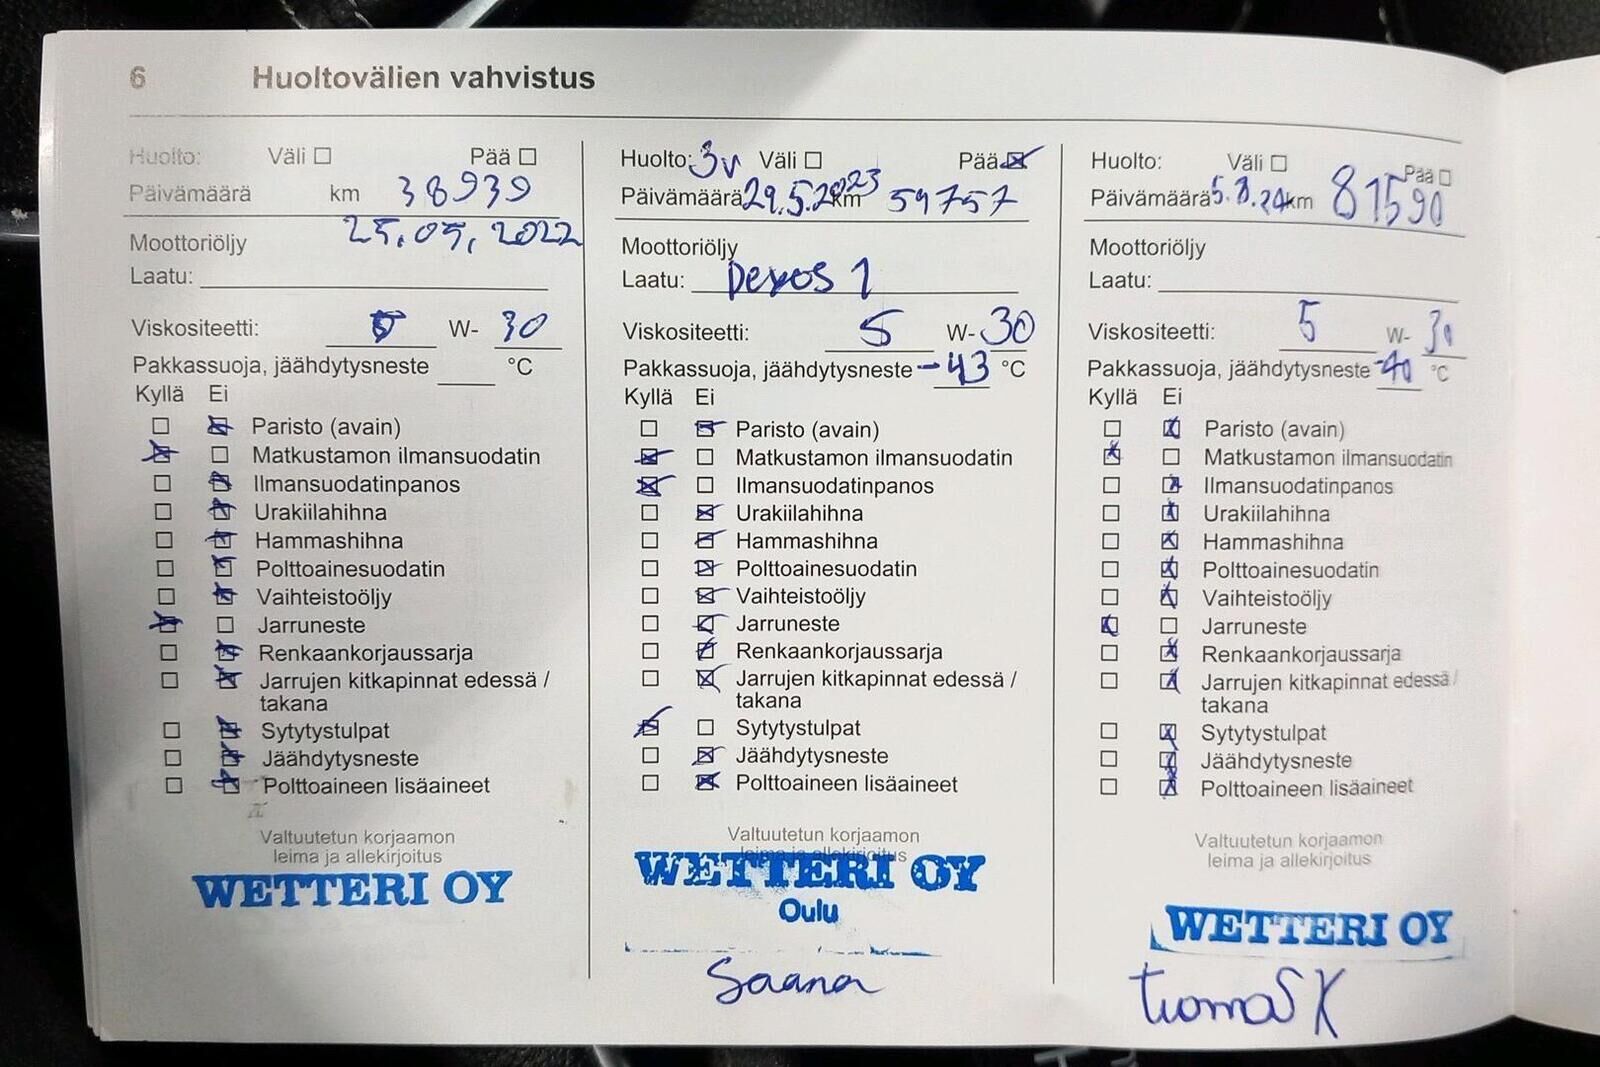 6 Huoltovälien vahvistus
Huolto: Väli Pää
Päivämäärä km 38939
25.05.2022
Moottoriöljy
Laatu:
Viskositeetti: 5 W- 30
Pakkassuoja, jäähdytysneste °C
Kyllä Ei
Paristo (avain)
Matkustamon ilmansuodatin
Ilmansuodatinpanos
Urakiilahihna
Hammashihna
Polttoainesuodatin
Vaihteistoöljy
Jarruneste
Renkaankorjaussarja
Jarrujen kitkapinnat edessä /
takana
Sytytystulpat
Jäähdytysneste
Polttoaineen lisäaineet
Valtuutetun korjaamon
leima ja allekirjoitus
WETTERI OY
Huolto: 3v Väli Pää
Päivämäärä 29.5.2023 km 59757
Moottoriöljy
Laatu: Dexos 1
Viskositeetti: 5 W- 30
Pakkassuoja, jäähdytysneste -43 °C
Kyllä Ei
Paristo (avain)
Matkustamon ilmansuodatin
Ilmansuodatinpanos
Urakiilahihna
Hammashihna
Polttoainesuodatin
Vaihteistoöljy
Jarruneste
Renkaankorjaussarja
Jarrujen kitkapinnat edessä /
takana
Sytytystulpat
Jäähdytysneste
Polttoaineen lisäaineet
Valtuutetun korjaamon
leima ja allekirjoitus
WETTERI OY
Oulu
Saana
Huolto: Väli Pää
Päivämäärä 5.8.24 km 81590
Moottoriöljy
Laatu:
Viskositeetti: 5 W- 30
Pakkassuoja, jäähdytysneste -40 °C
Kyllä Ei
Paristo (avain)
Matkustamon ilmansuodatin
Ilmansuodatinpanos
Urakiilahihna
Hammashihna
Polttoainesuodatin
Vaihteistoöljy
Jarruneste
Renkaankorjaussarja
Jarrujen kitkapinnat edessä /
takana
Sytytystulpat
Jäähdytysneste
Polttoaineen lisäaineet
Valtuutetun korjaamon
leima ja allekirjoitus
WETTERI OY
Tuomas K